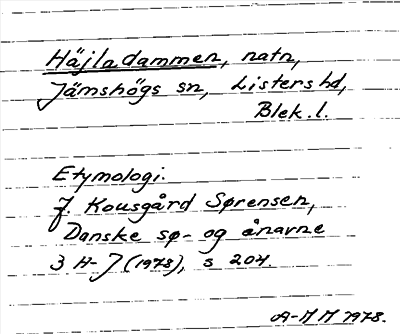 Häjladammen, natn,
Jämshögs sn, Listers hd,
Blek. l.
Etymologi.
J. Kousgård Sørensen,
Danske sø- og ånavne
3 H-J (1978), s 204.
A-MM 1978.